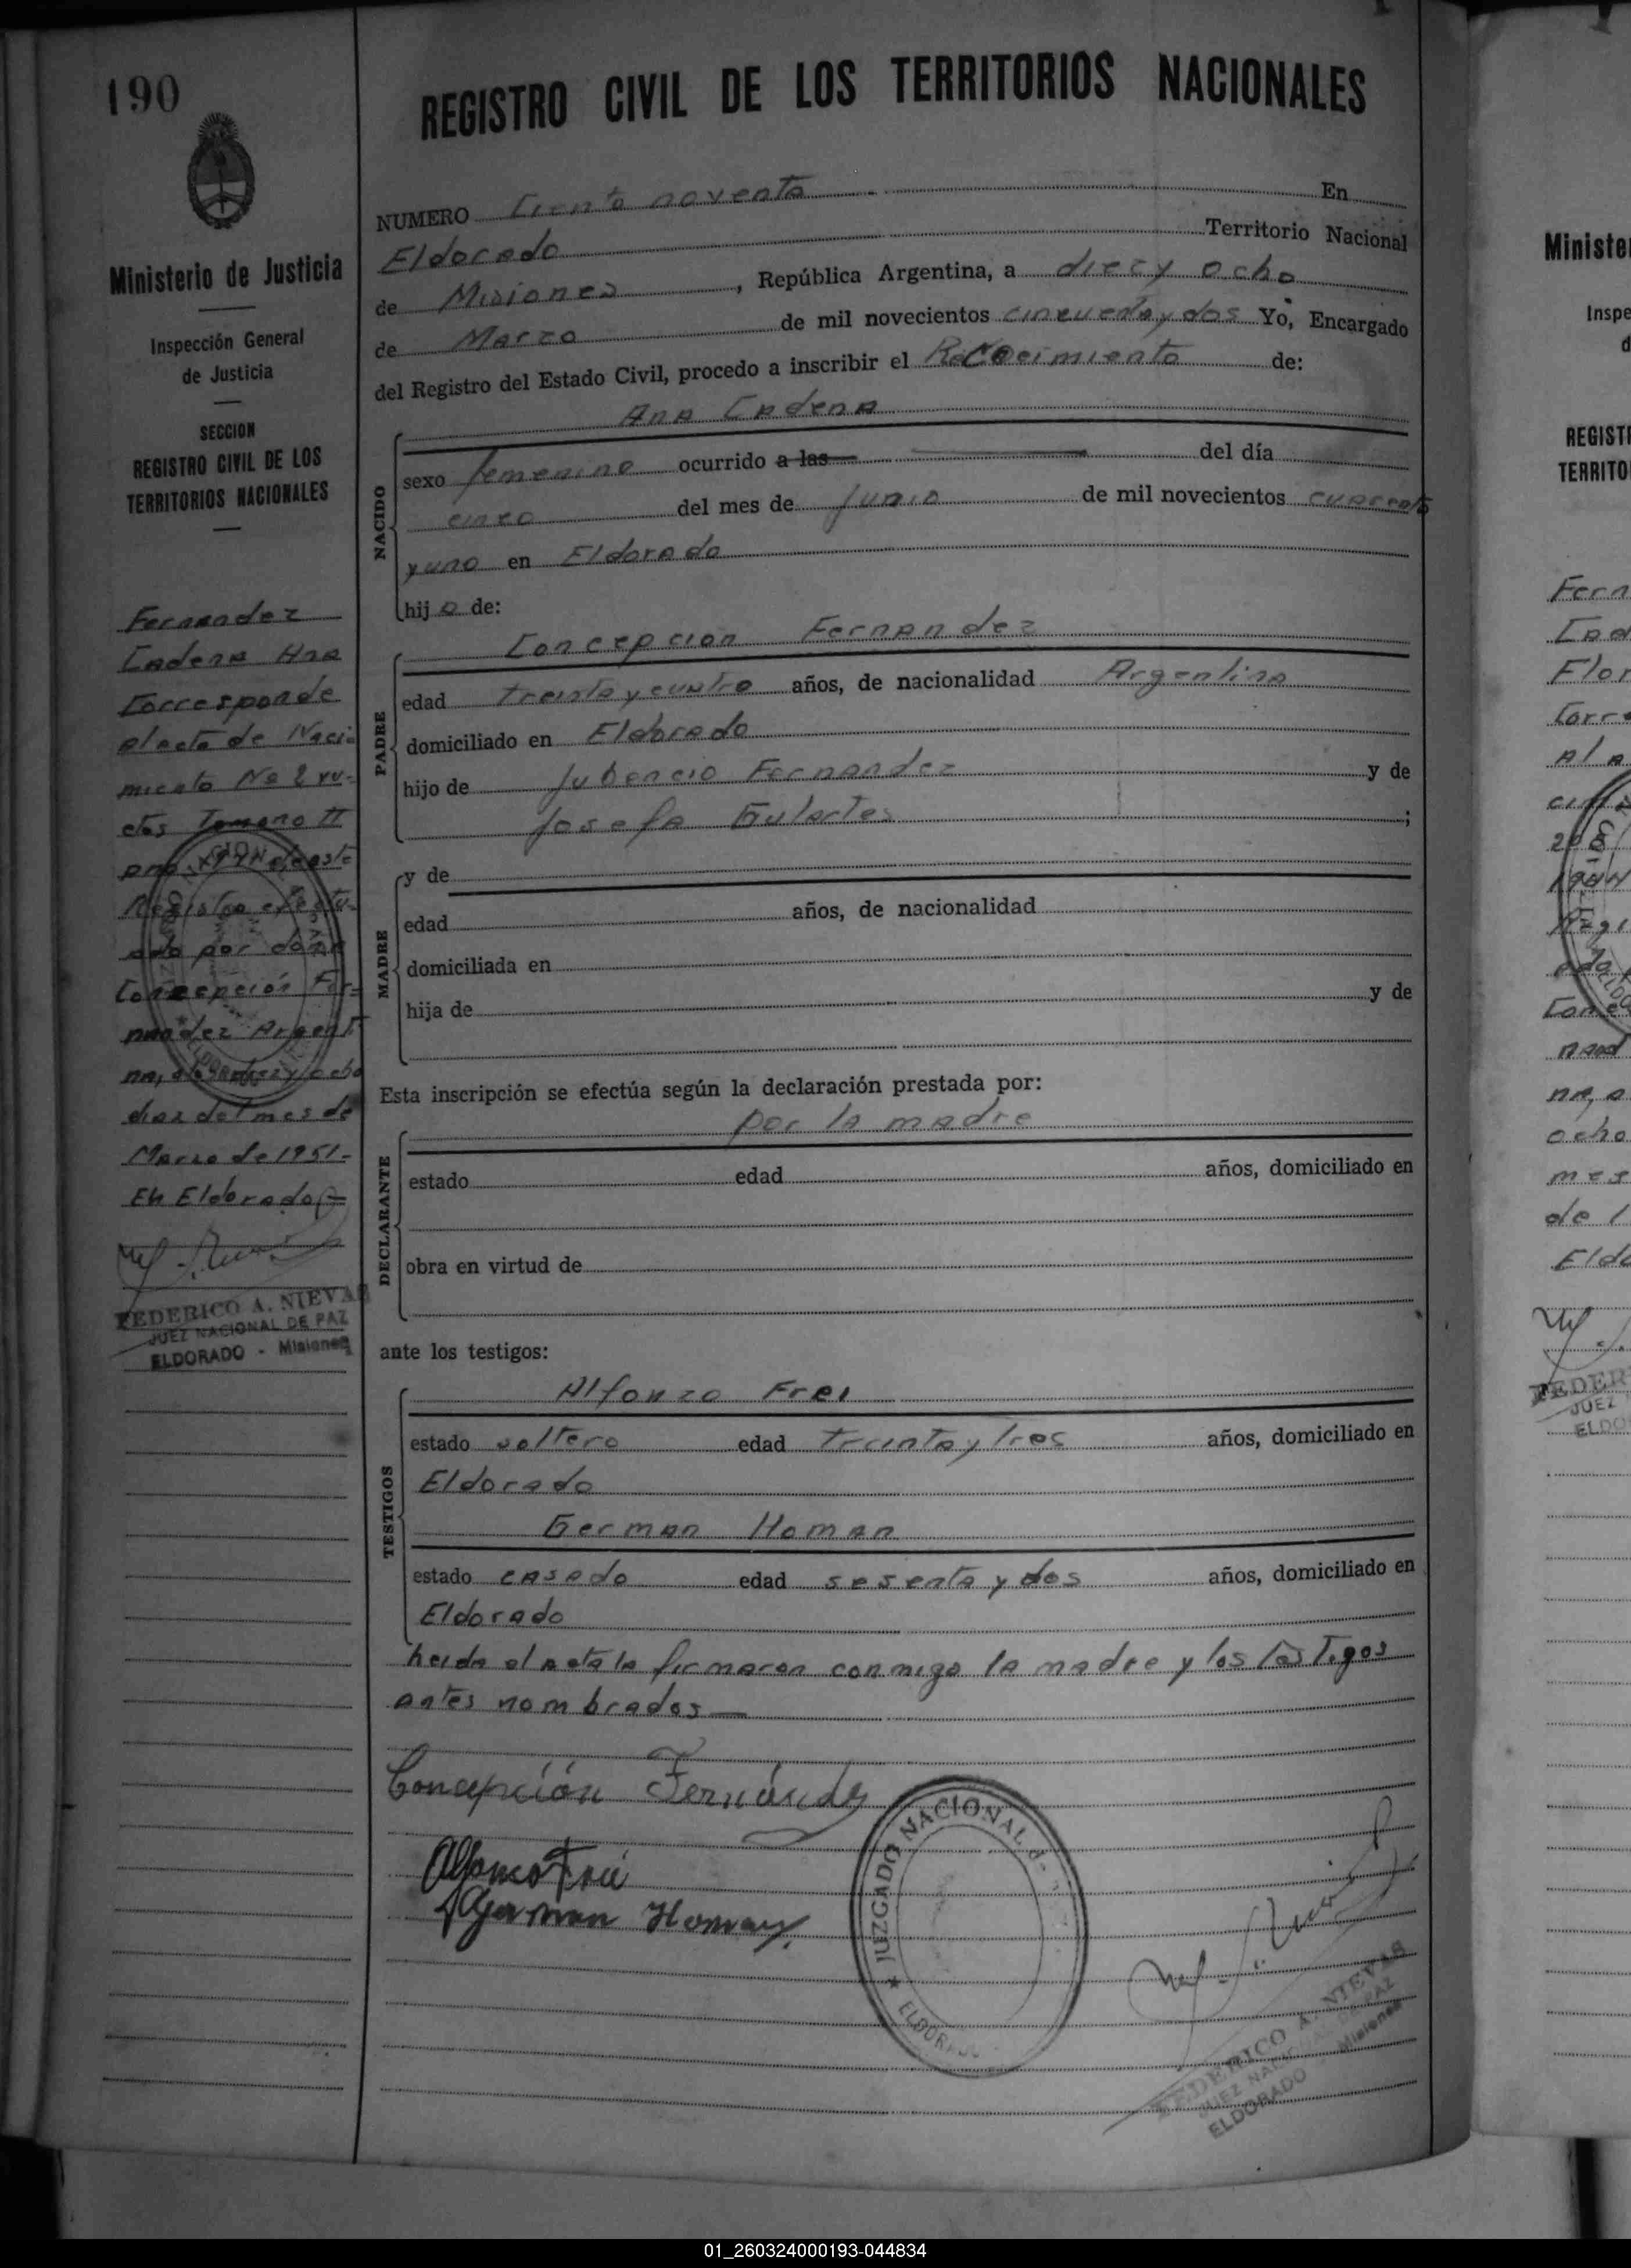 190
REGISTRO CIVIL DE LOS TERRITORIOS NACIONALES
Ministerio de Justicia
Inspección General
de Justicia
SECCION
REGISTRO CIVIL DE LOS
TERRITORIOS NACIONALES
Fernandez
Cadena Ana
Corresponde
al acta de Naci-
miento No
Registro
por doña
Concepción Fer-
nandez Argenti-
na, diez y ocho
dias del mes de
Marzo de 1951-
En Eldorado
FEDERICO A. NIEVAS
JUEZ NACIONAL DE PAZ
ELDORADO - Misiones
NUMERO Ciento noventa En
Eldorado Territorio Nacional
de Misiones, República Argentina, a diez y ocho
de Marzo de mil novecientos cincuenta y dos Yo, Encargado
del Registro del Estado Civil, procedo a inscribir el de:
Ana Cadena
NACIDO
sexo femenino ocurrido a las del día
cinco del mes de Junio de mil novecientos cuarenta
y uno en Eldorado
hij a de:
PADRE
Concepcion Fernandez
edad treinta y cuatro años, de nacionalidad Argentina
domiciliado en Eldorado
hijo de Jubencio Fernandez y de
Josefa Gulartes;
MADRE
y de
edad años, de nacionalidad
domiciliada en
hija de y de
Esta inscripción se efectúa según la declaración prestada por:
DECLARANTE
por la madre
estado edad años, domiciliado en
obra en virtud de
ante los testigos:
TESTIGOS
Alfonzo Frei
estado soltero edad treinta y tres años, domiciliado en
Eldorado
German Homan
estado casado edad sesenta y dos años, domiciliado en
Eldorado
heida el acta la firmaron conmigo la madre y los testigos
antes nombrados
Concepción Fernández
Alfonso Frei
German Homan
JUZGADO NACIONAL
ELDORADO
FEDERICO A. NIEVAS
JUEZ NACIONAL DE PAZ
ELDORADO - Misiones
Ministe
Inspe
d
REGIST
TERRITO
Fern
Cad
Flor
Corre
Al a
208
1944
Regi
Conc
nand
na, a
ocho
mes
de 1
Eldo
FEDER
JUEZ
ELDO
01_260324000193-044834